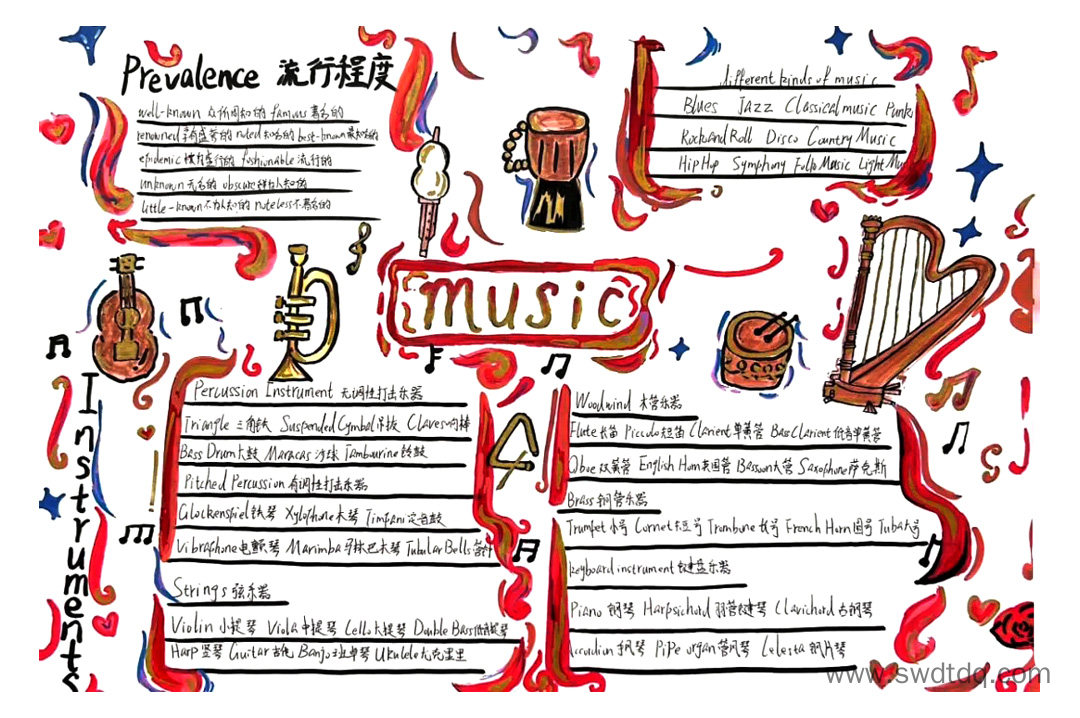 Prevalence 流行程度
well-known 众所周知的 famous 著名的
renowned 享有盛誉的 noted 知名的 best-known 最知名的
epidemic 极为盛行的 fashionable 流行的
unknown 无名的 obscure 鲜为人知的
little-known 不为人知的 noteless 不著名的
different kinds of music
Blues Jazz Classical music Punk
Rock And Roll Disco Country Music
Hip Hop Symphony Folk Music Light Mu
music
Instruments
Percussion Instrument 无调性打击乐器
Triangle 三角铁 Suspended Cymbol 吊钹 Claves 响棒
Bass Drum 大鼓 Maracas 沙球 Tambourine 铃鼓
Pitched Percussion 有调性打击乐器
Glockenspiel 铁琴 Xylophone 木琴 Timpani 定音鼓
Vibraphone 电颤琴 Marimba 马林巴木琴 Tubular Bells 管钟
Strings 弦乐器
Violin 小提琴 Viola 中提琴 Cello 大提琴 Double Bass 低音提琴
Harp 竖琴 Guitar 吉他 Banjo 班卓琴 Ukulele 尤克里里
Woodwind 木管乐器
Flute 长笛 Piccolo 短笛 Clarient 单簧管 Bass Clarient 低音单簧管
Oboe 双簧管 English Horn 英国管 Bassoon 大管 Saxophone 萨克斯
Brass 铜管乐器
Trumpet 小号 Cornet 短号 Trombone 长号 French Horn 圆号 Tuba 大号
keyboard instrument 键盘乐器
Piano 钢琴 Harpsichord 羽管键琴 Clavichord 古钢琴
Accordion 手风琴 Pipe organ 管风琴 Celesta 钢片琴
www.swdtdq.com